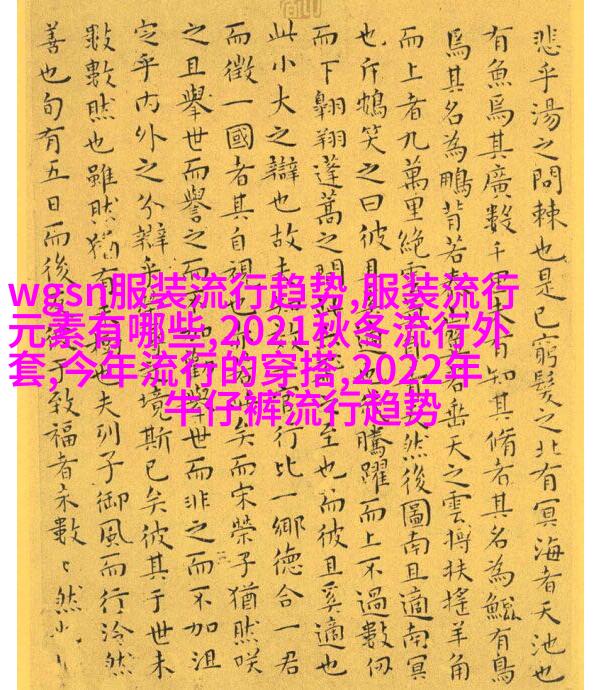 wgsn服装流行趋势,服装流行
元素有哪些,2021秋冬流行外
套,今年流行的穿搭,2022年
牛仔裤流行趋势
悲乎湯之問棘也是已窮髮之北有冥海者天池也
有魚焉其廣數千里未有知其脩者其名為鯤有鳥
焉其名為鵬背若垂天之雲摶扶搖羊角
而上者九萬里絕雲天然後圖南且適南冥
也斥鴳笑之曰彼且奚適也騰躍而上不過數仞
而下翱翔蓬蒿之間至也而彼且奚適也
此小大之辯也故夫官行比一鄉德合一君
而徵一國者其自視也矣而宋榮子猶然咲
之且舉世而譽之而不世而非之而不加沮
定乎內外之分辯乎境斯已矣彼其于世未
數數然也雖然猶有也夫列子御風而行泠然
善也旬有五日而後于致福者未數〻然也